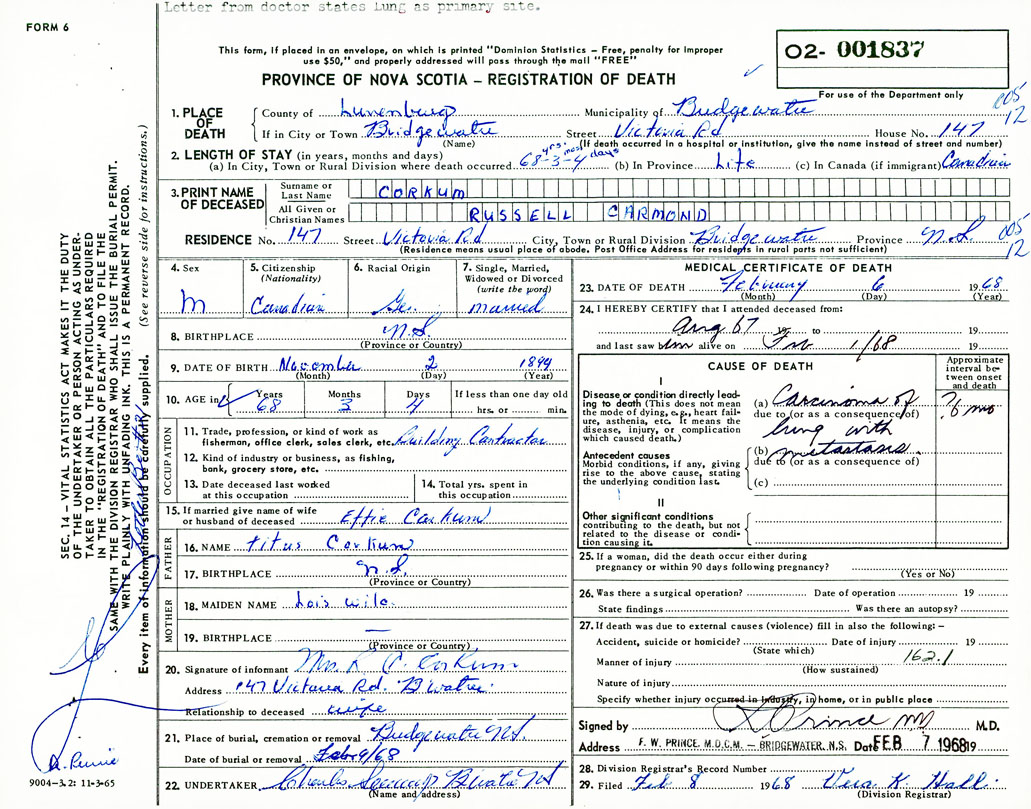 Letter from doctor states Lung as primary site.
FORM 6
This form, if placed in an envelope, on which is printed "Dominion Statistics – Free, penalty for improper
use $50," and properly addressed will pass through the mail "FREE"
PROVINCE OF NOVA SCOTIA – REGISTRATION OF DEATH
O2- 001837
For use of the Department only
005
12
1. PLACE OF DEATH
County of Lunenburg Municipality of Bridgewater
If in City or Town Bridgewater Street Victoria Rd House No. 147
(Name) (If death occurred in a hospital or institution, give the name instead of street and number)
2. LENGTH OF STAY (in years, months and days)
(a) In City, Town or Rural Division where death occurred 68 yrs. - 3 mos - 4 days (b) In Province Life (c) In Canada (if immigrant) Canadian
3. PRINT NAME OF DECEASED
Surname or Last Name CORKUM
All Given or Christian Names RUSSELL CARMOND
RESIDENCE No. 147 Street Victoria Rd City, Town or Rural Division Bridgewater Province N.S. 005
12
(Residence means usual place of abode. Post Office Address for residents in rural parts not sufficient)
4. Sex M
5. Citizenship (Nationality) Canadian
6. Racial Origin Ger.
7. Single, Married, Widowed or Divorced (write the word) married
8. BIRTHPLACE N.S.
(Province or Country)
9. DATE OF BIRTH November 2 1899
(Month) (Day) (Year)
10. AGE in Years 68 Months 3 Days 4 If less than one day old hrs. or min.
OCCUPATION
11. Trade, profession, or kind of work as fisherman, office clerk, sales clerk, etc. Building Contractor
12. Kind of industry or business, as fishing, bank, grocery store, etc.
13. Date deceased last worked at this occupation
14. Total yrs. spent in this occupation
15. If married give name of wife or husband of deceased Effie Corkum
FATHER
16. NAME Titus Corkum
17. BIRTHPLACE N.S.
(Province or Country)
MOTHER
18. MAIDEN NAME Lois Wile
19. BIRTHPLACE —
(Province or Country)
20. Signature of informant Mrs. R C. Corkum
Address 147 Victoria Rd. B'water
Relationship to deceased wife
21. Place of burial, cremation or removal Bridgewater N.S.
Date of burial or removal Feb 9/68
22. UNDERTAKER Charles B'water NS
(Name and address)
MEDICAL CERTIFICATE OF DEATH
23. DATE OF DEATH February 6 1968
(Month) (Day) (Year)
24. I HEREBY CERTIFY that I attended deceased from:
Aug 67 19 to 19
and last saw him alive on Feb 1/68 19
CAUSE OF DEATH
Approximate interval between onset and death
I
Disease or condition directly leading to death (This does not mean the mode of dying, e.g., heart failure, asthenia, etc. It means the disease, injury, or complication which caused death.)
(a) Carcinoma of ? 6 mo
due to (or as a consequence of)
lung with
Antecedent causes
Morbid conditions, if any, giving rise to the above cause, stating the underlying condition last.
(b) metastasis
due to (or as a consequence of)
(c)
II
Other significant conditions
contributing to the death, but not related to the disease or condition causing it.
25. If a woman, did the death occur either during
pregnancy or within 90 days following pregnancy?
(Yes or No)
26. Was there a surgical operation? Date of operation 19
State findings Was there an autopsy?
27. If death was due to external causes (violence) fill in also the following: –
Accident, suicide or homicide? Date of injury 19
(State which)
Manner of injury 162.1
(How sustained)
Nature of injury
Specify whether injury occurred in industry, in home, or in public place
Signed by Prince MD M.D.
Address F. W. PRINCE, M.D.C.M. – BRIDGEWATER, N.S. Date FEB 7 1968 19
28. Division Registrar's Record Number
29. Filed Feb 8 1968 Vera K. Hall
(Division Registrar)
SEC. 14 – VITAL STATISTICS ACT MAKES IT THE DUTY
OF THE UNDERTAKER OR PERSON ACTING AS UNDER-
TAKER TO OBTAIN ALL THE PARTICULARS REQUIRED
IN THE "REGISTRATION OF DEATH" AND TO FILE THE
SAME WITH THE DIVISION REGISTRAR WHO SHALL ISSUE THE BURIAL PERMIT.
WRITE PLAINLY WITH UNFADING INK. THIS IS A PERMANENT RECORD.
Every item of information should be carefully supplied. (See reverse side for instructions.)
9004–3.2: 11-3-65